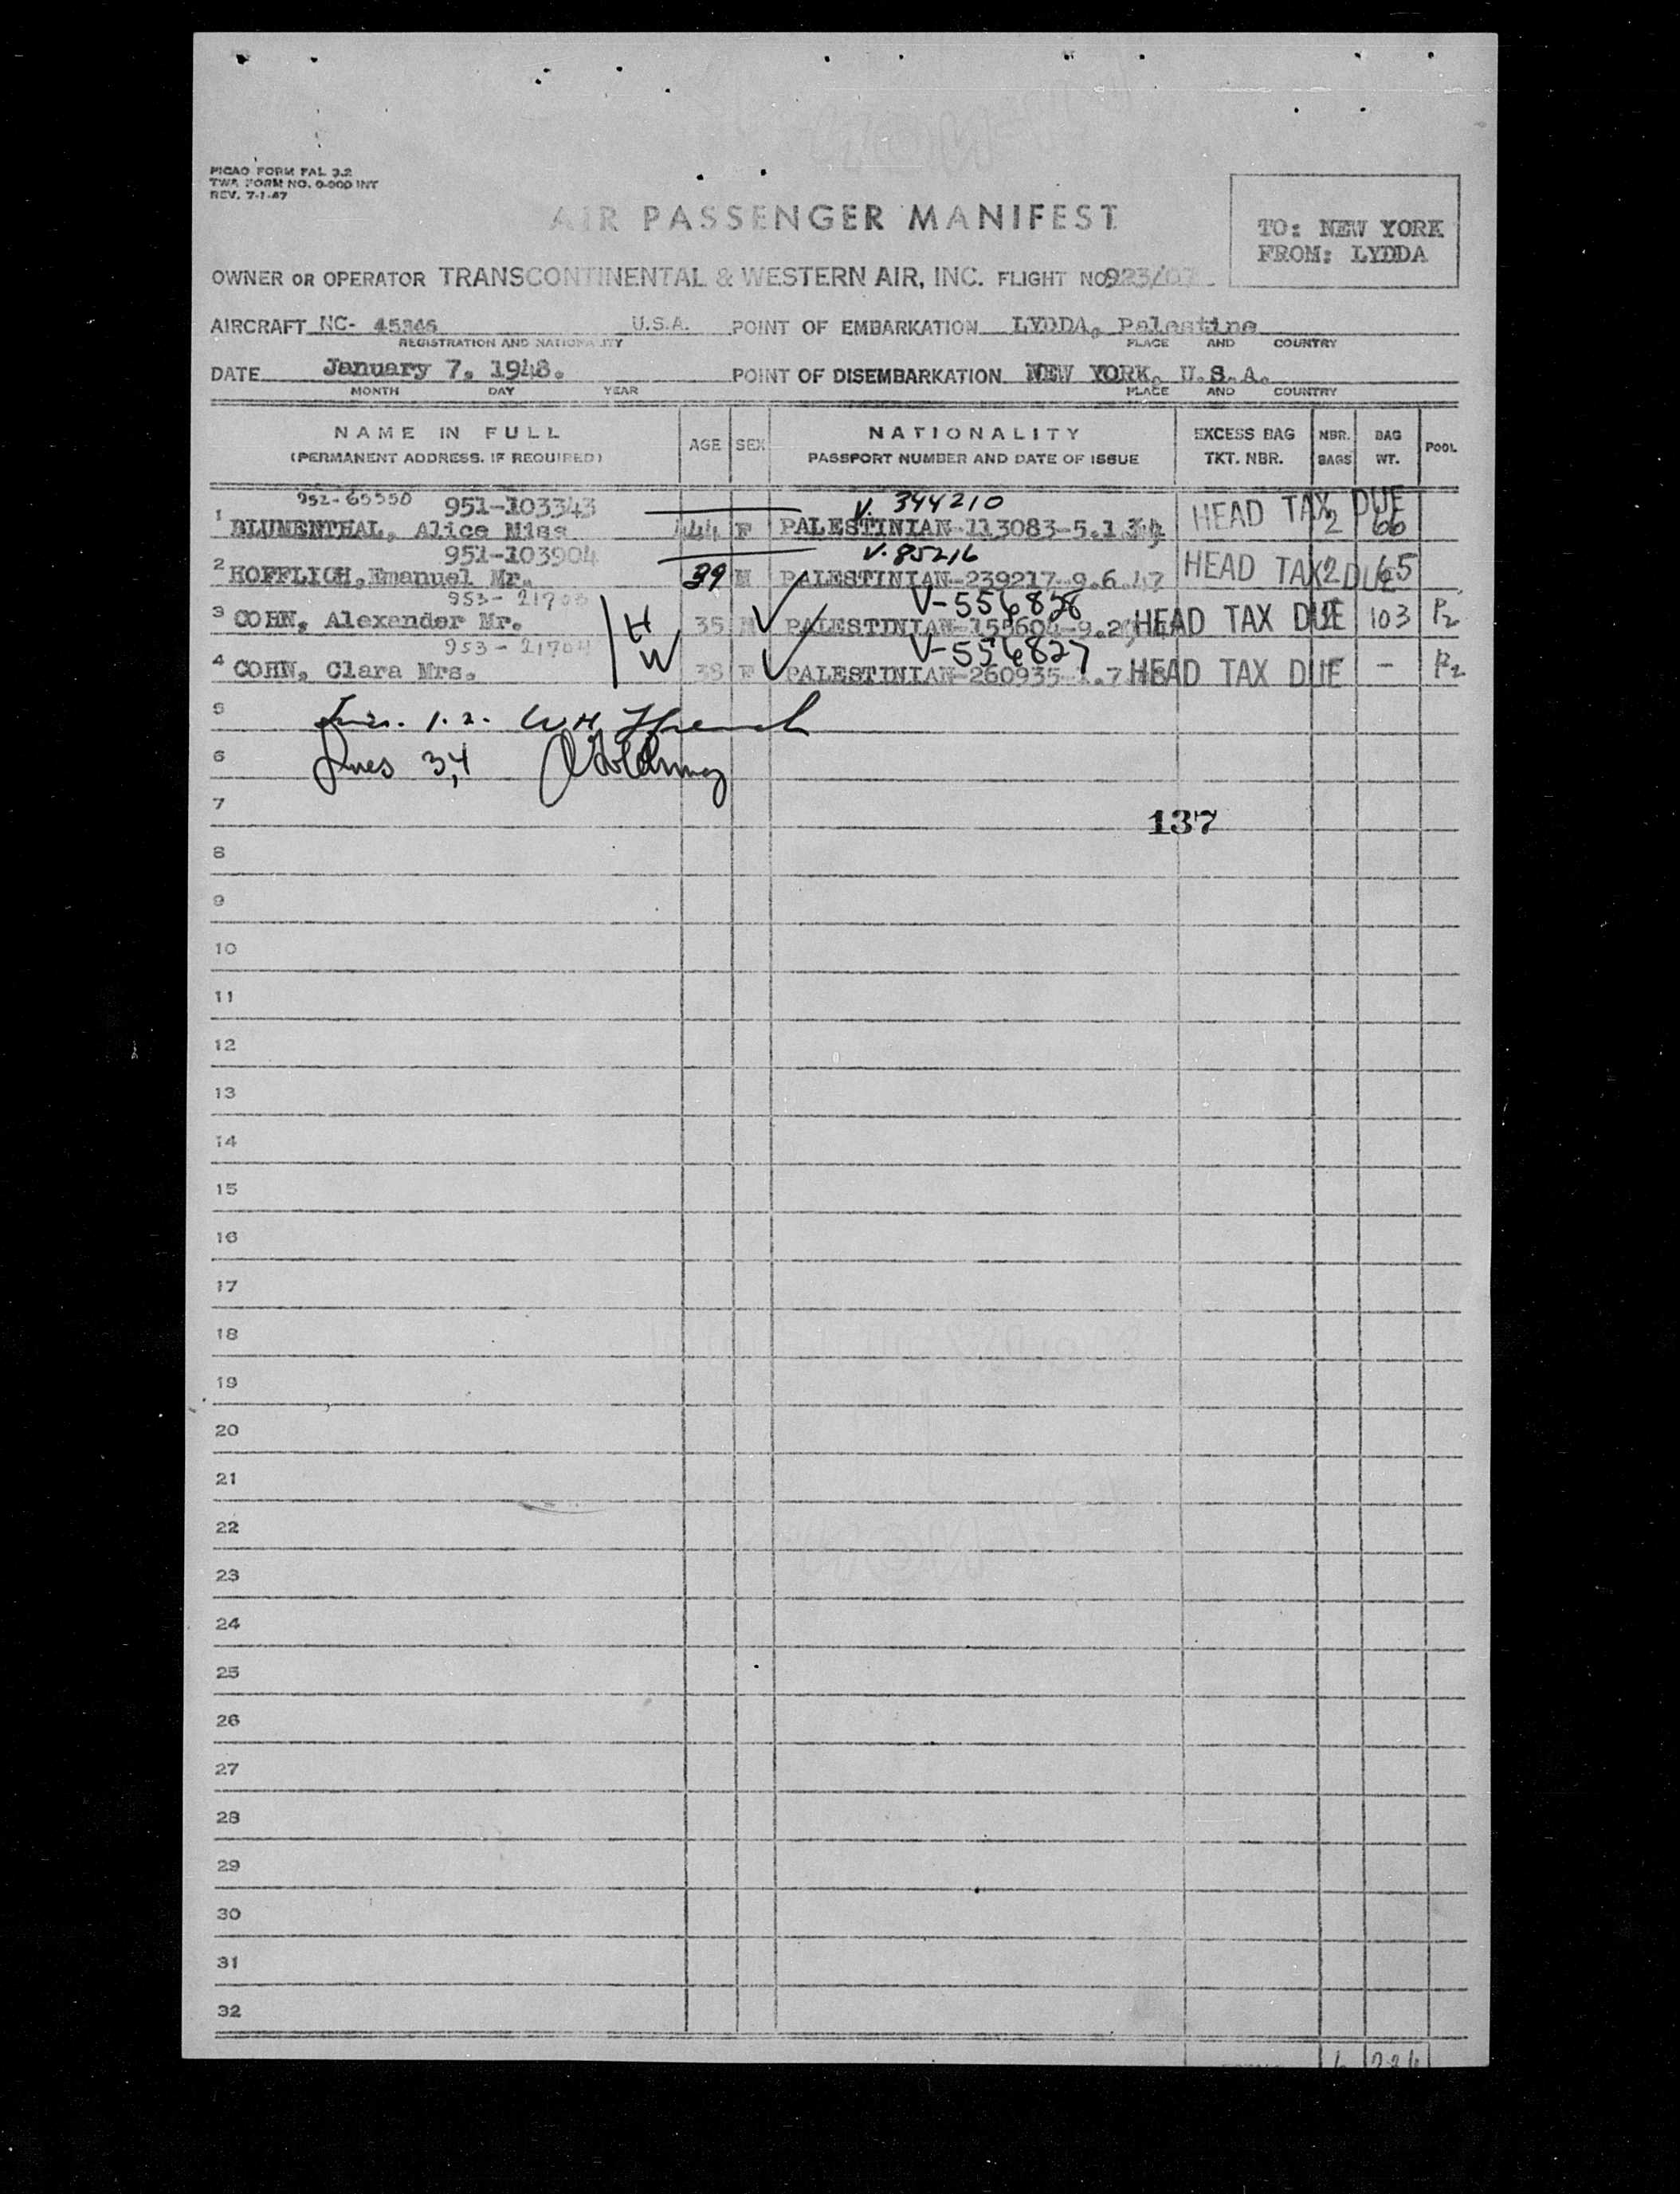 PICAO FORM FAL 3.2
TWA FORM NO. 0-000 INT
REV. 7-1-47
AIR PASSENGER MANIFEST
TO: NEW YORK
FROM: LYDDA
OWNER OR OPERATOR TRANSCONTINENTAL & WESTERN AIR, INC. FLIGHT NO 923/07
AIRCRAFT NC- 45346 U.S.A. POINT OF EMBARKATION LYDDA, Palestine
REGISTRATION AND NATIONALITY PLACE AND COUNTRY
DATE January 7, 1948. POINT OF DISEMBARKATION NEW YORK, U.S.A.
MONTH DAY YEAR PLACE AND COUNTRY
NAME IN FULL AGE SEX NATIONALITY EXCESS BAG NBR. BAG POOL
(PERMANENT ADDRESS, IF REQUIRED) PASSPORT NUMBER AND DATE OF ISSUE TKT. NBR. BAGS WT.
952-65550 951-103343 V. 344210
1 BLUMENTHAL, Alice Miss 44 F PALESTINIAN-113083-5.1 HEAD TAX DUE 2 66
951-103904 V. 85216
2 HOFFLICH, Emanuel Mr. 39 M PALESTINIAN-239217-9.6.47 HEAD TAX DUE 2 65
953-21703 V-556828
3 COHN, Alexander Mr. H 35 M PALESTINIAN-155604-9.2 HEAD TAX DUE 103 P2
953-21704 V-556827
4 COHN, Clara Mrs. W 38 F PALESTINIAN-260935-1.7 HEAD TAX DUE - P2
5 1.2. W.H.
6 Lines 3,4
7
137
8
9
10
11
12
13
14
15
16
17
18
19
20
21
22
23
24
25
26
27
28
29
30
31
32